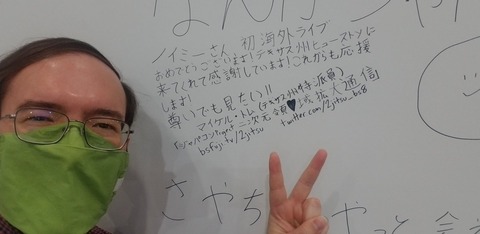 なんか
ノイミーさん 初 海外ライブ
おめでとうございます!テキサス州ヒューストンに
来てくれて感謝しています!これからも応援
します
尊いでも見たい!!
マイケル・トレイ(テキサス州特派員)
二次元領♥域拡大通信
bsfuji.tv/2jitsu twitter.com/2jitsu_bs8
さやち やっと 会